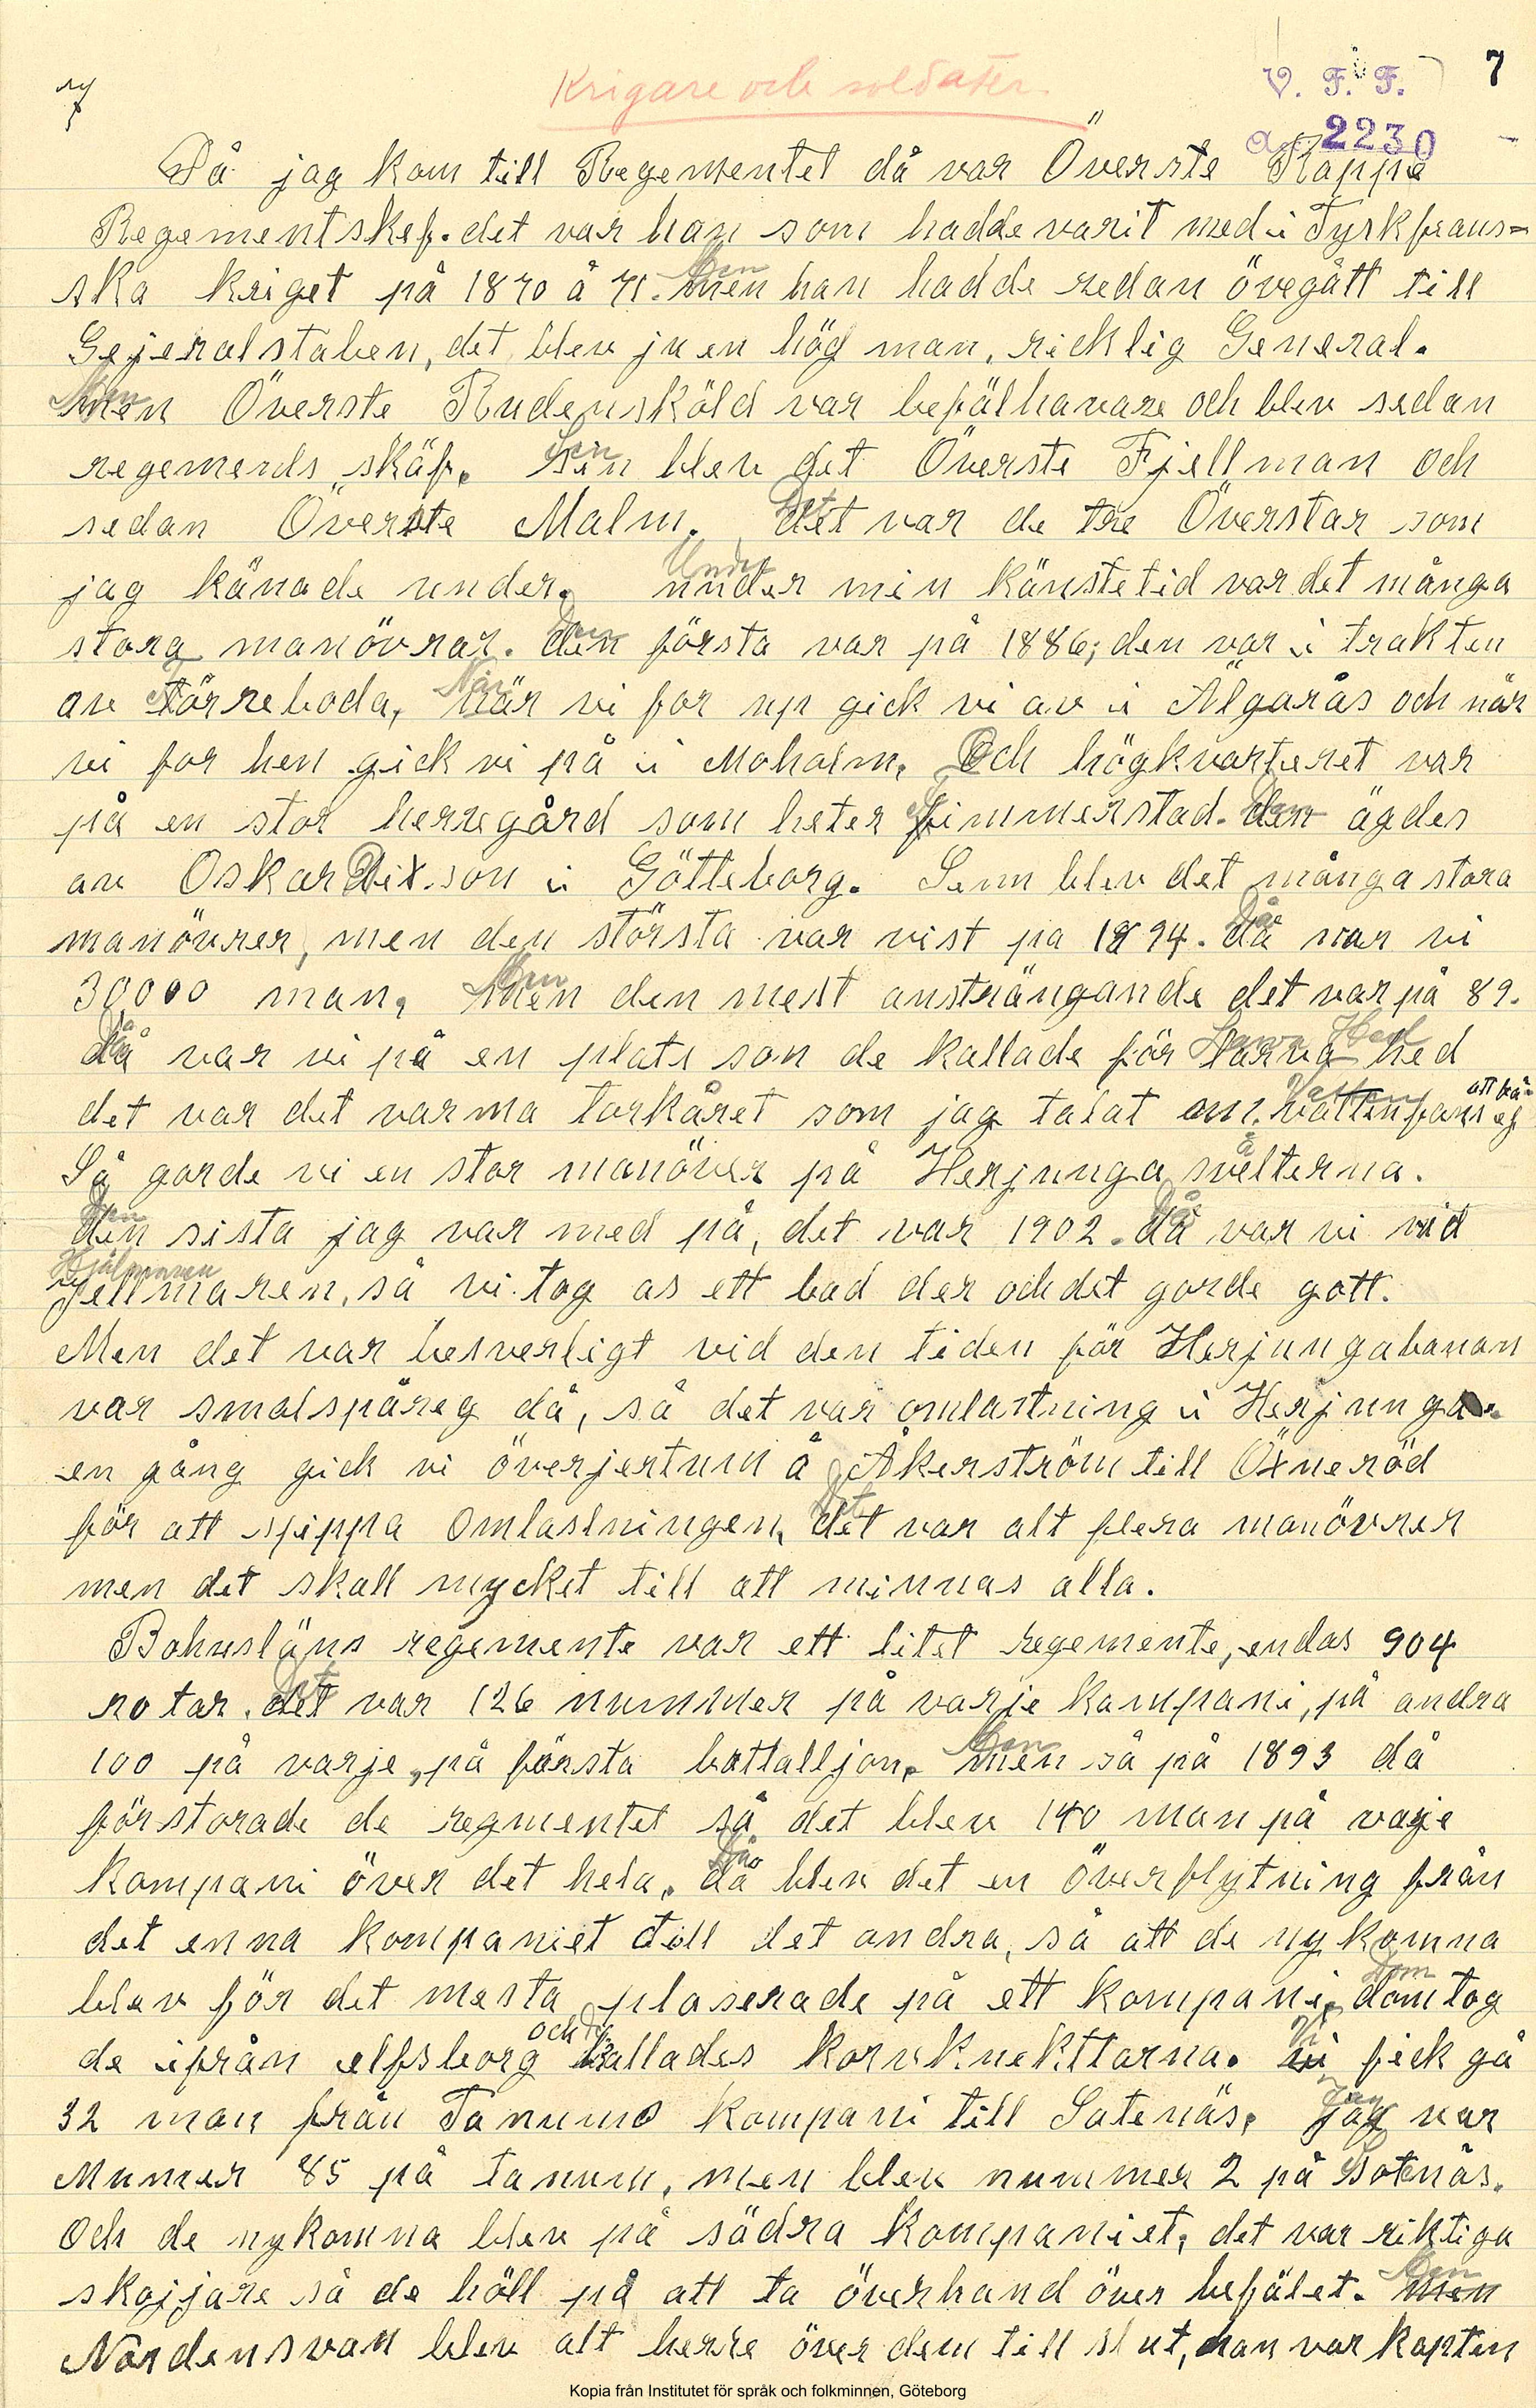 Krigare och soldater
V. F. F.
7
7
a. 2230
Då jag kom till Regementet då var Överste Rappe
Regementskef. det var han som hadde varit med i Tyskfrans=
ska kriget på 1870 å 71. Men han hadde redan övegått till
Gejeralstaben, det blev ju en hög man, ricklig General.
Men Överste Rudensköld var befälhavare och blev sedan
regemends skäf. Sen blev det Överste Fjellman och
sedan Överste Malm. Det var de tre Överstar som
jag känade under. Under min känstetid var det många
stora manövrar. Den första var på 1886; den var i trakten
av Törreboda, När vi for up gick vi av i Älgarås och när
vi for hen gick vi på i Moholm. Och högkvarteret var
på en stor herregård som heter Fimmerstad. Den ägdes
av Oskar Dixson i Götteborg. Senn blev det många stora
manövrer, men den största var vist pa 1894. Då var vi
30000 man, Men den mest ansträngande det var på 89.
Då var vi på en plats son de kallade för Larva Hed
det var det varma torkåret som jag talat om. Vatten fans ej att få
Så gorde vi en stor manöver på Herjunga svälterna.
Den sista jag var med på, det var 1902. Då var vi vid
Jellmaren, så vi tog as ett bad der och det gorde gott.
Hjälmaren
Men det var besverligt vid den tiden för Herjungabanan
var smalspåreg då, så det var omlastning i Herjunga.
en gång gick vi överjertum å Åkerström till Öxneröd
för att slippa omlastningen, Det var alt flera manövrer
men det skall mycket till att minnas alla.
Bohusläns regemente var ett litet regemente, endas 904
rotar. Det var 126 nummer på varje kampani, på andra
100 på varje, på första battalljon. Men så på 1893 då
förstorade de regmentet så det blev 140 man på varje
kompani över det hela. Då blev det en överflytning från
det enna kompaniet till det andra, så att de nykomna
blev för det mesta plaserade på ett kompani. Dom tog
de ifrån elfsborg och kallades Korvknekttarna. Vi fick gå
32 man från Tanums kompani till Sotenäs. Jag var
Numer 85 på tanum, men blev nummer 2 på Sotenäs.
Och de nykomna blev på södra kompaniet, det var riktiga
skojjare så de höll på att ta överhand över befälet. Men
Nordensvan blev alt herre över dem till slut, han var kapten
Kopia från Institutet för språk och folkminnen, Göteborg